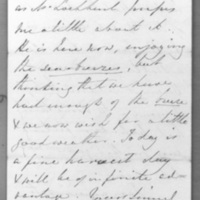 me a little about it.
He is here now, enjoying
the sea breezes, but
thinking that we have
had enough of the
& we now wish for a little
good weather. Today is
a fine harvest day
& will be of infinite ad-
vantage.